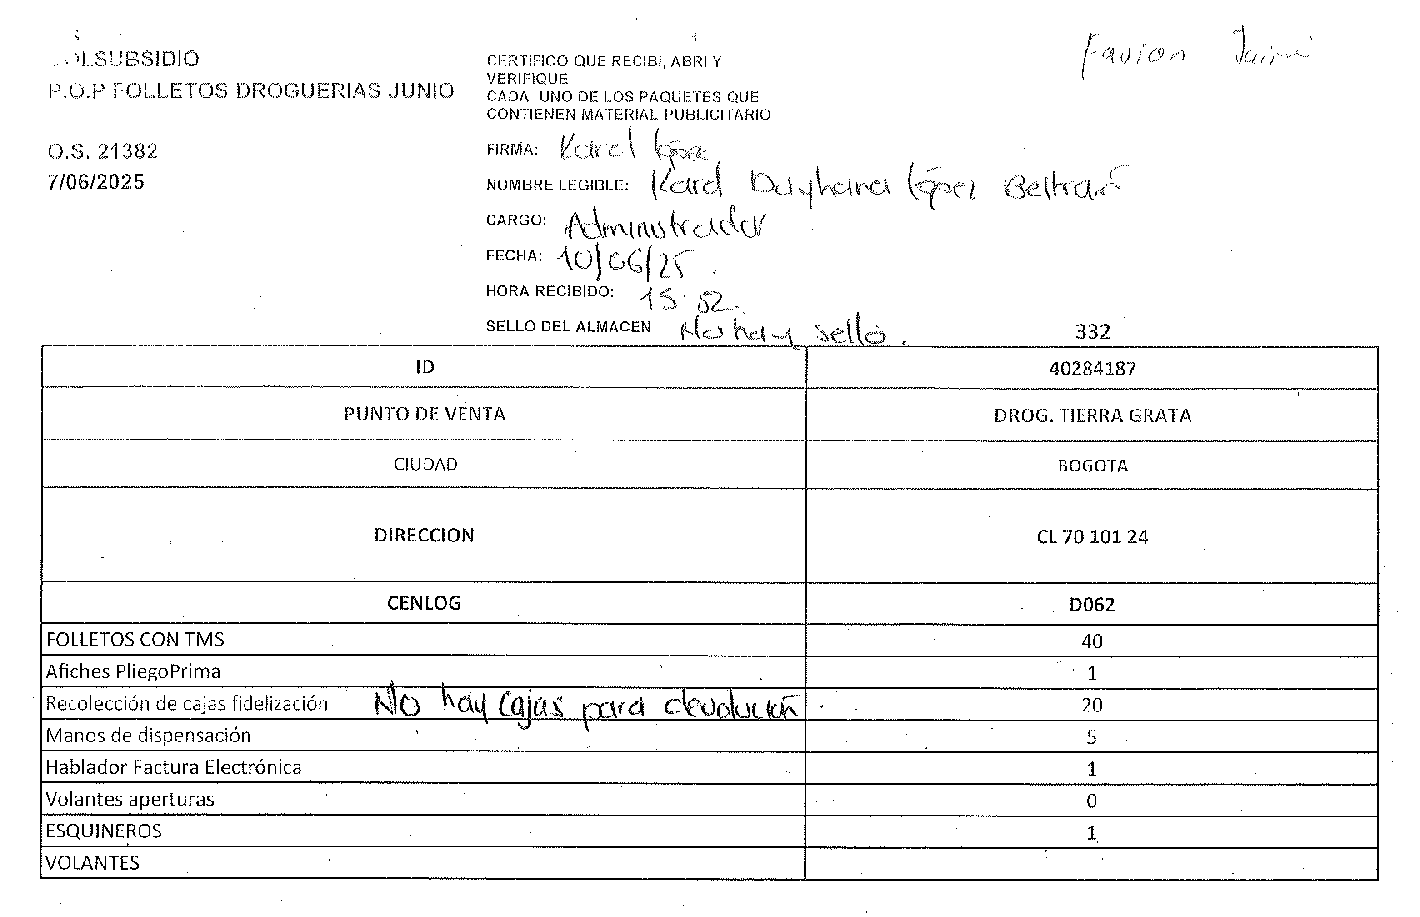 COLSUBSIDIO
P.O.P FOLLETOS DROGUERIAS JUNIO
O.S. 21382
7/06/2025
CERTIFICO QUE RECIBI, ABRI Y
VERIFIQUE
CADA UNO DE LOS PAQUETES QUE
CONTIENEN MATERIAL PUBLICITARIO
FIRMA: Karol López
NOMBRE LEGIBLE: Karol Dayhana López Beltran
CARGO: Administrador
FECHA: 10/06/25.
HORA RECIBIDO: 15:52.
SELLO DEL ALMACEN No hay sello.
Favion
332
ID 40284187
PUNTO DE VENTA DROG. TIERRA GRATA
CIUDAD BOGOTA
DIRECCION CL 70 101 24
CENLOG D062
FOLLETOS CON TMS 40
Afiches PliegoPrima 1
Recolección de cajas fidelización No hay cajas para devolución 20
Manos de dispensación 5
Hablador Factura Electrónica 1
Volantes aperturas 0
ESQUINEROS 1
VOLANTES